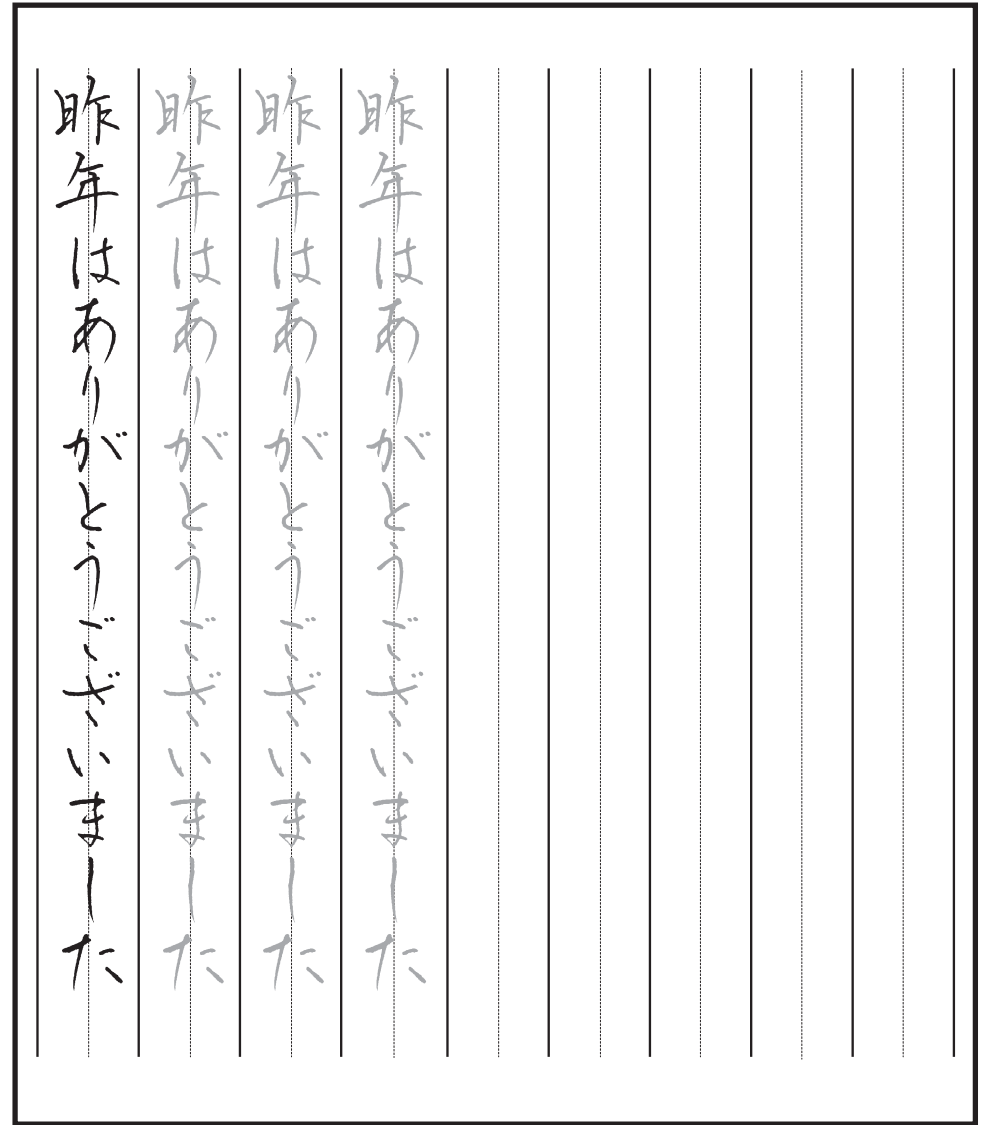 昨年はありがとうございました
昨年はありがとうございました
昨年はありがとうございました
昨年はありがとうございました